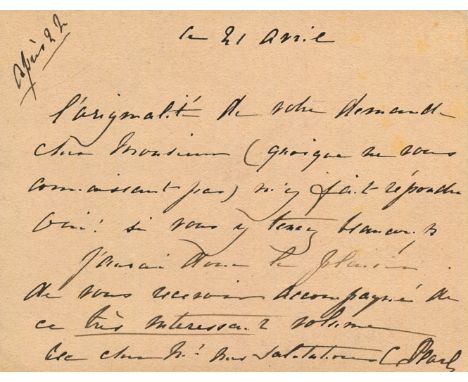 le 21 avril
l'originalité de votre demande
cher Monsieur (quoique ne vous
connaissant pas) m'y fait répondre
oui! si vous y tenez beaucoup
j'aurai donc le plaisir
de vous recevoir accompagné de
ce très interessant volume
cher mes salutations